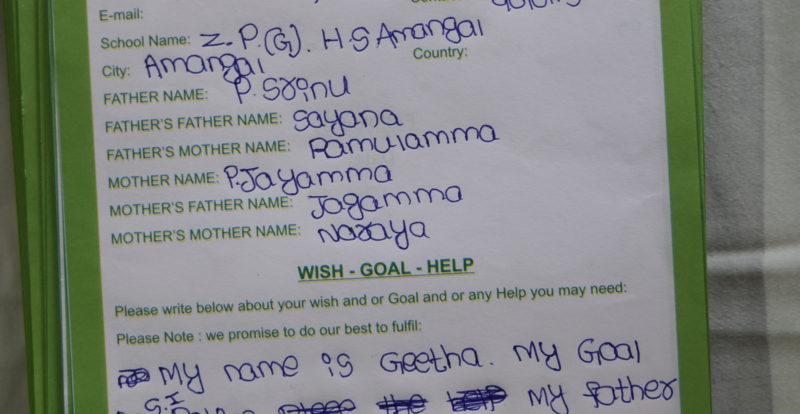 E-mail:
School Name: Z.P.(G). H S Amangal
City: Amangal Country:
FATHER NAME: P. Srinu
FATHER'S FATHER NAME: Sayana
FATHER'S MOTHER NAME: Ramulamma
MOTHER NAME: P.Jayamma
MOTHER'S FATHER NAME: Jogamma
MOTHER'S MOTHER NAME: Naraya
WISH - GOAL - HELP
Please write below about your wish and or Goal and or any Help you may need:
Please Note : we promise to do our best to fulfil:
My name is Geetha. My Goal
S.I the help My father